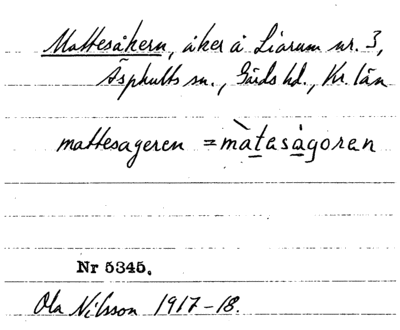 Mattesåkern, åker å Liarum nr. 3,
Äsphults sn., Gärds hd., Kr. län
mattesageren = màtasågoran
Nr 5345.
Ola Nilsson 1917-18.